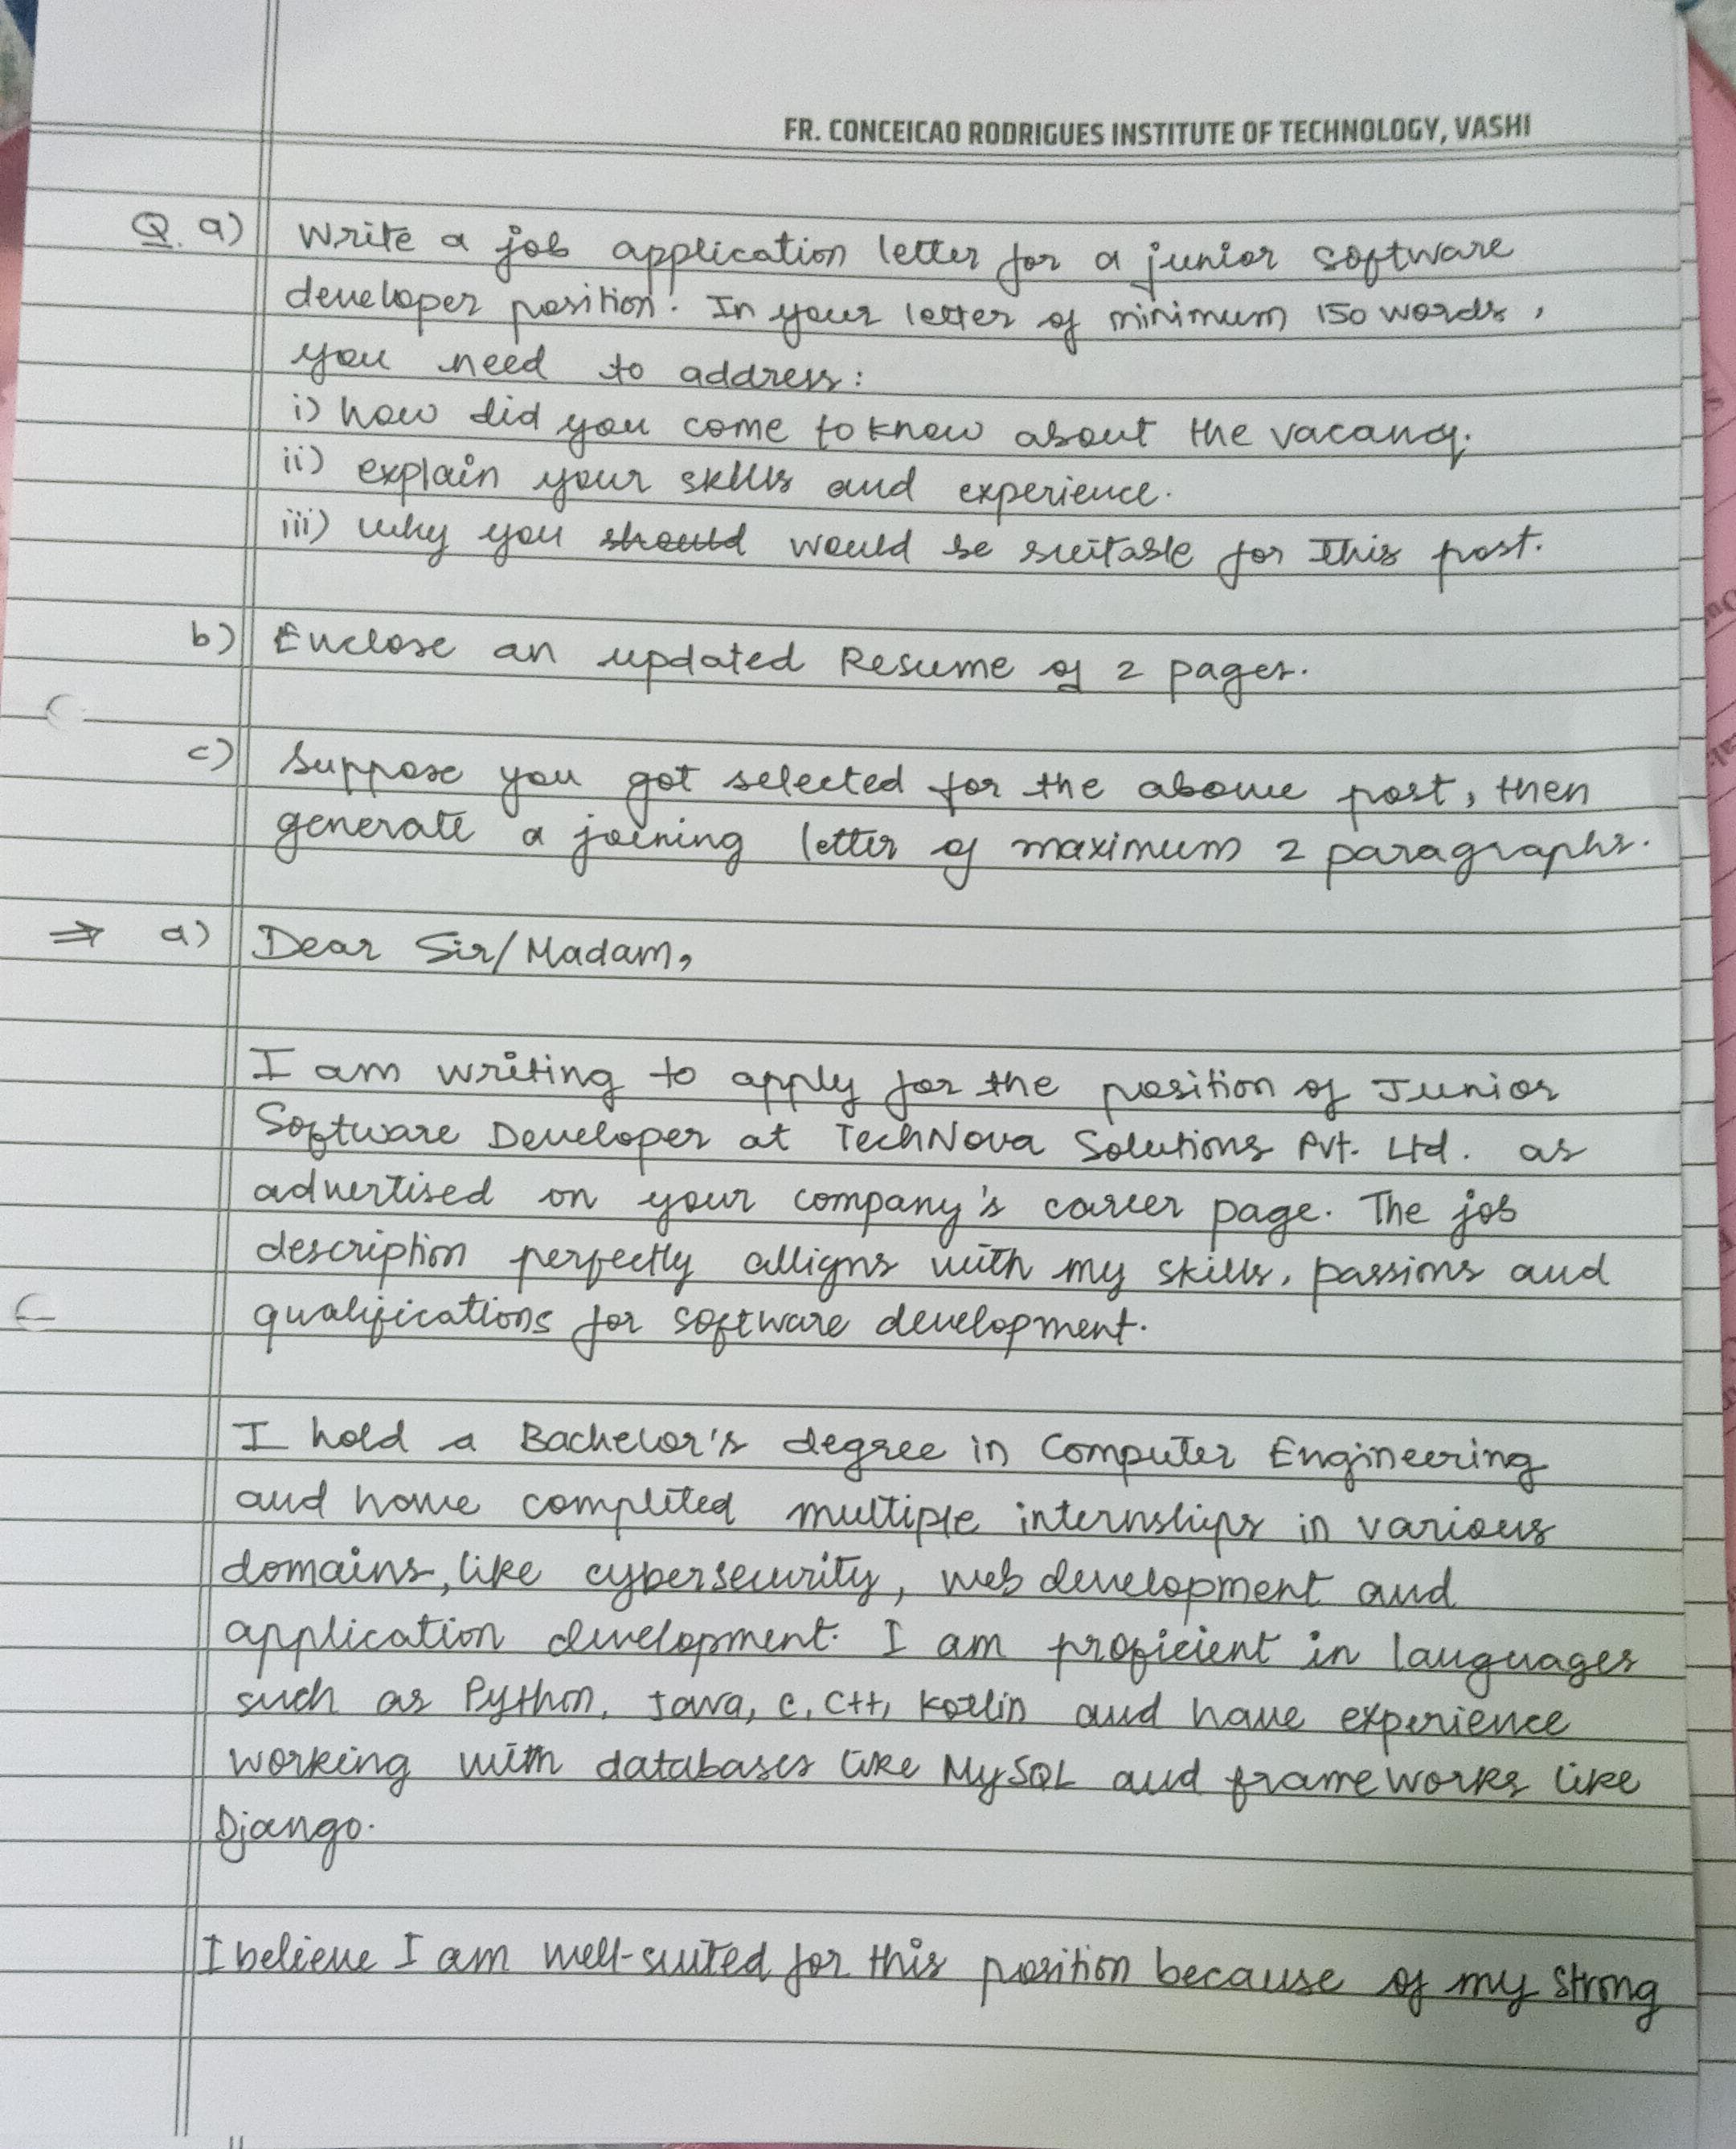 FR. CONCEICAO RODRIGUES INSTITUTE OF TECHNOLOGY, VASHI
Q. a) Write a job application letter for a junior software
developer position. In your letter of minimum 150 words,
you need to address:
i) how did you come to know about the vacancy.
ii) explain your skills and experience.
iii) why you should would be suitable for this post.
b) Enclose an updated Resume of 2 pages.
c) Suppose you got selected for the above post, then
generate a joining letter of maximum 2 paragraphs.
⇒ a) Dear Sir/Madam,
I am writing to apply for the position of Junior
Software Developer at TechNova Solutions Pvt. Ltd. as
advertised on your company's career page. The job
description perfectly alligns with my skills, passions and
qualifications for software development.
I hold a Bachelor's degree in Computer Engineering
and have completed multiple internships in various
domains, like cybersecurity, web development and
application development. I am proficient in languages
such as Python, Java, C, C++, Kotlin and have experience
working with databases like MySQL and frameworks like
Django.
I believe I am well-suited for this position because of my strong